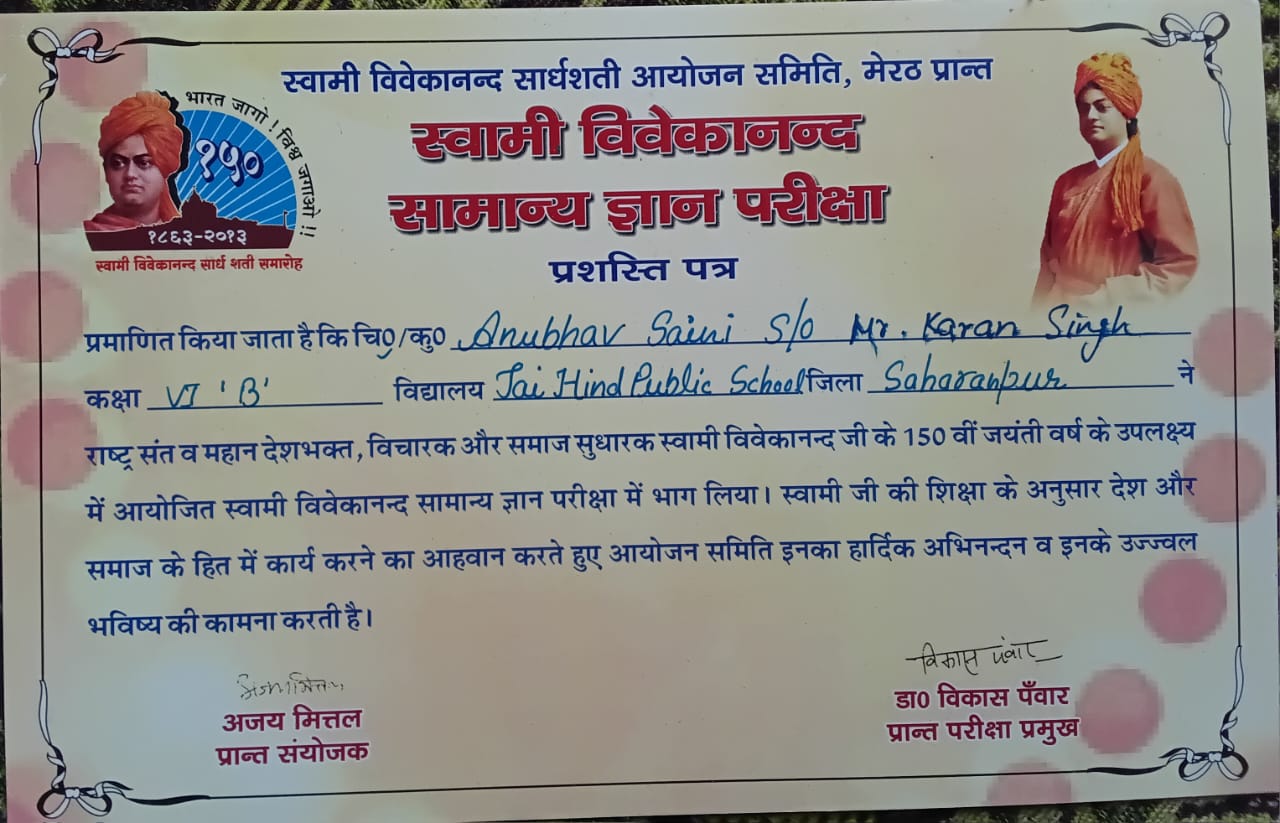 स्वामी विवेकानन्द सार्धशती आयोजन समिति, मेरठ प्रान्त
भारत जागो ! विश्व जगाओ !!
१५०
१८६३-२०१३
स्वामी विवेकानन्द सार्ध शती समारोह
स्वामी विवेकानन्द
सामान्य ज्ञान परीक्षा
प्रशस्ति पत्र
प्रमाणित किया जाता है कि चि0/कु0 Anubhav Saini S/o Mr. Karan Singh
कक्षा VI 'B' विद्यालय Jai Hind Public School जिला Saharanpur ने
राष्ट्र संत व महान देशभक्त, विचारक और समाज सुधारक स्वामी विवेकानन्द जी के 150 वीं जयंती वर्ष के उपलक्ष्य
में आयोजित स्वामी विवेकानन्द सामान्य ज्ञान परीक्षा में भाग लिया। स्वामी जी की शिक्षा के अनुसार देश और
समाज के हित में कार्य करने का आहवान करते हुए आयोजन समिति इनका हार्दिक अभिनन्दन व इनके उज्ज्वल
भविष्य की कामना करती है।
अजय मित्तल
प्रान्त संयोजक
विकास पंवार
डा0 विकास पँवार
प्रान्त परीक्षा प्रमुख